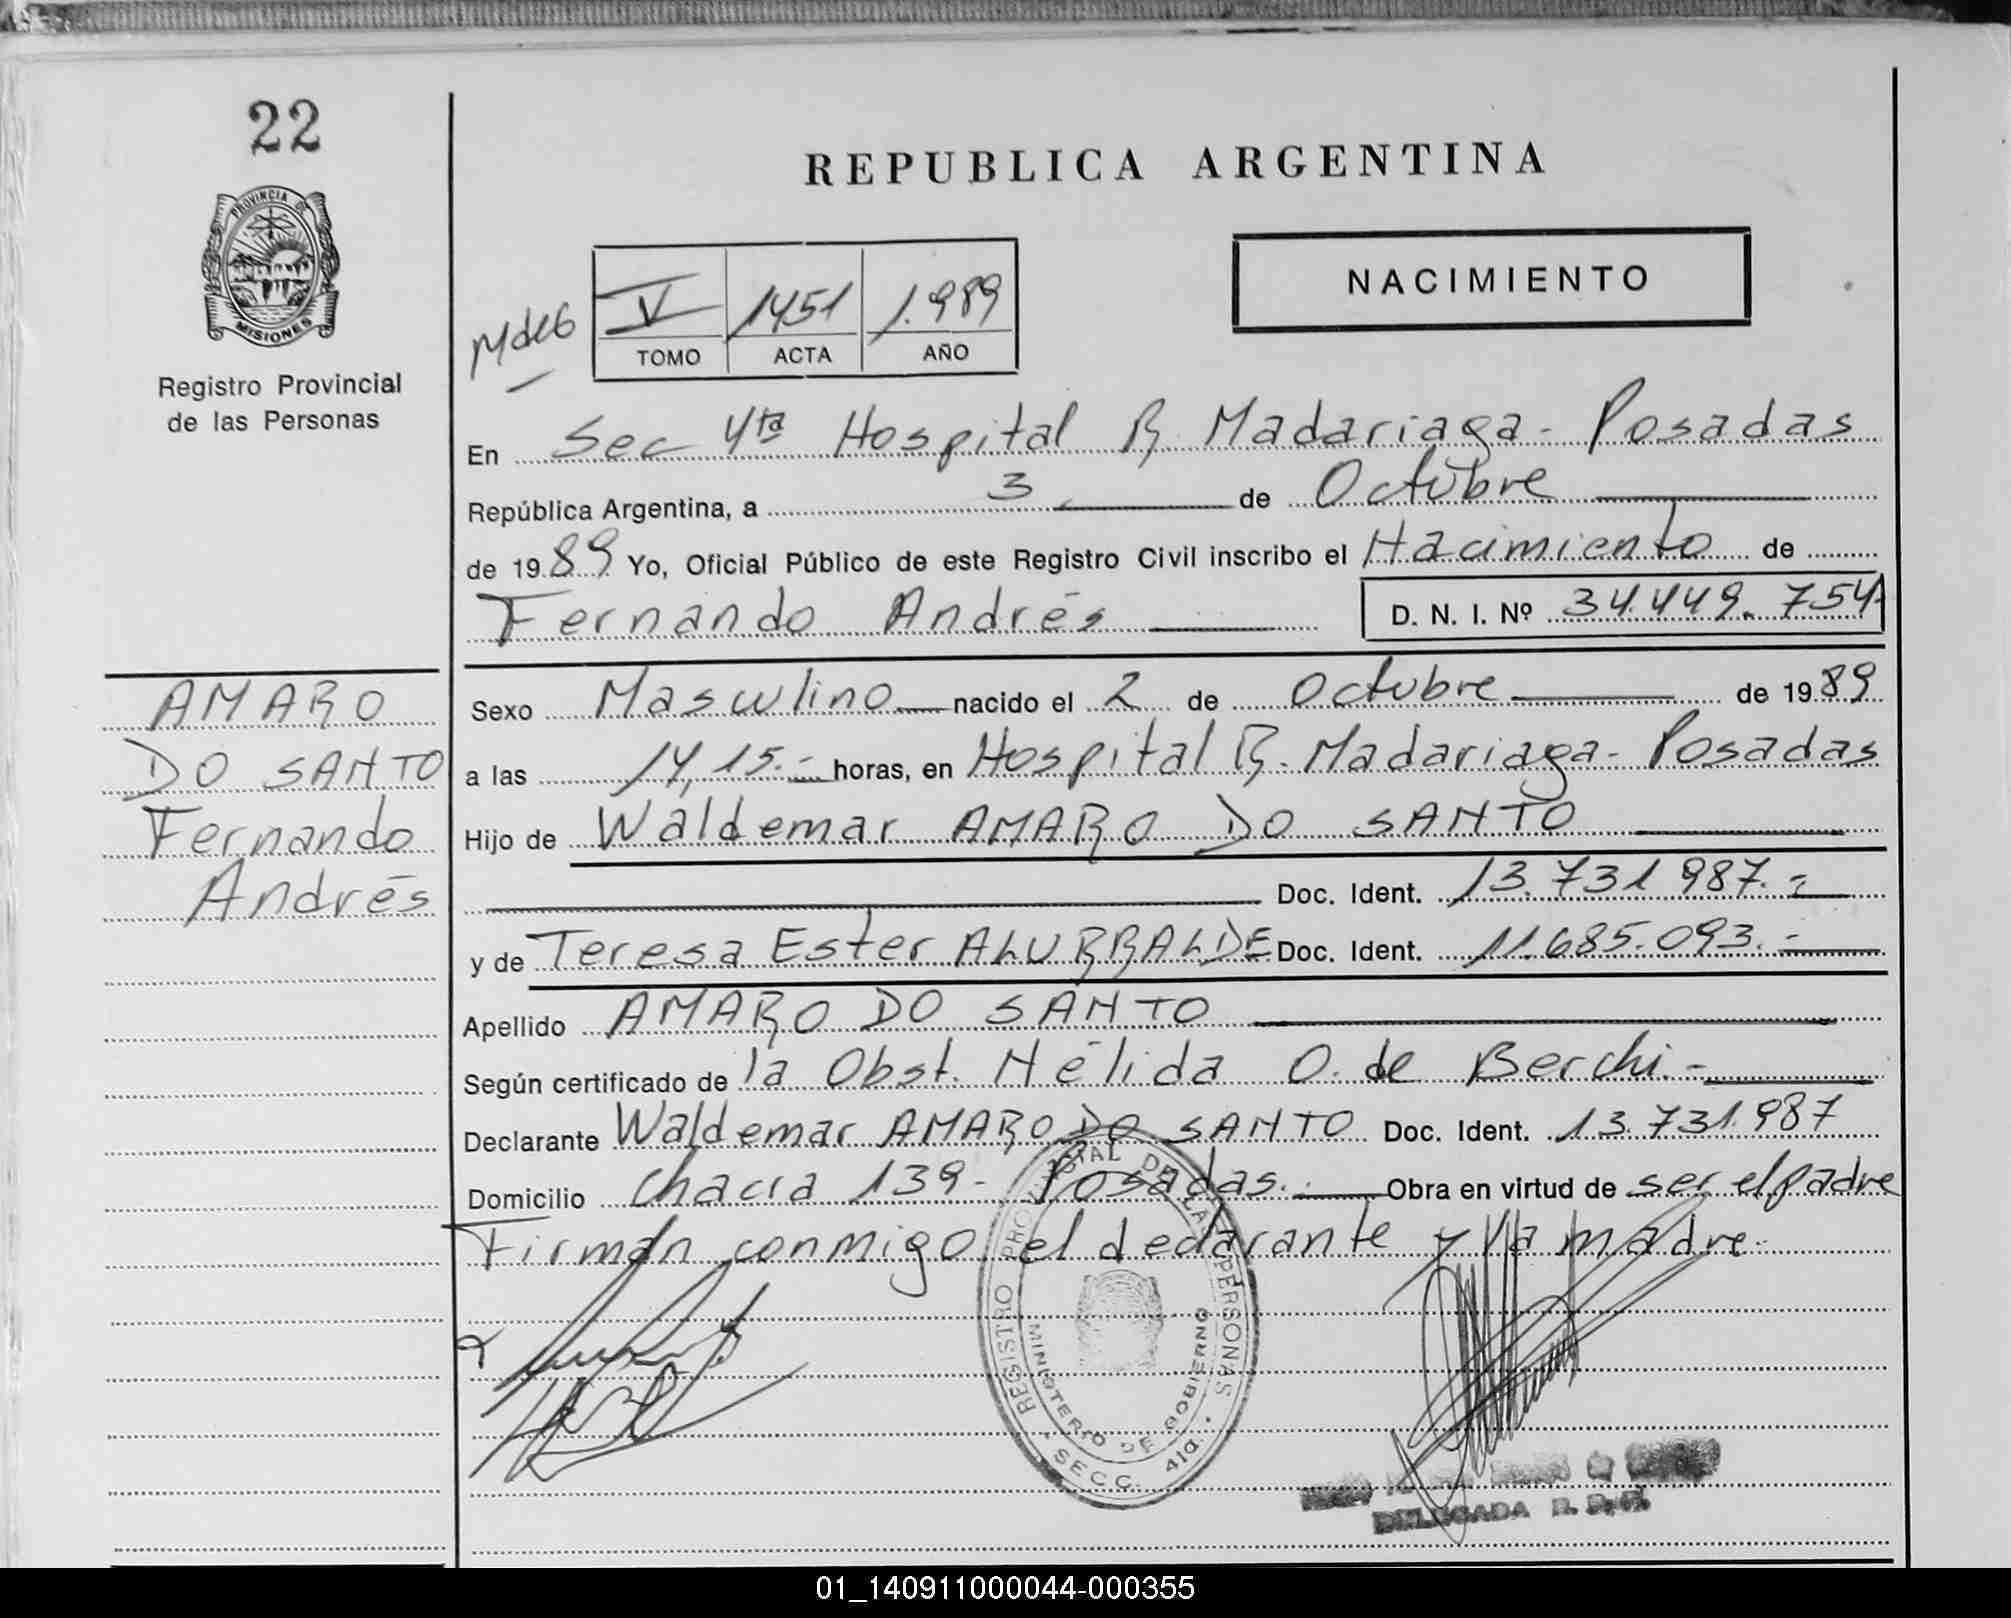 22
PROVINCIA DE
MISIONES
Registro Provincial
de las Personas
REPUBLICA ARGENTINA
NACIMIENTO
V 1451 1.989
TOMO ACTA AÑO
En Sec 4ta Hospital R. Madariaga - Posadas
República Argentina, a 3 de Octubre
de 1989 Yo, Oficial Público de este Registro Civil inscribo el Nacimiento de
Fernando Andrés D. N. I. Nº 34.449.754-
AMARO
DO SANTO
Fernando
Andrés
Sexo Masculino nacido el 2 de Octubre de 1989
a las 14,15.- horas, en Hospital R. Madariaga - Posadas
Hijo de Waldemar AMARO DO SANTO
Doc. Ident. 13.731.987.-
y de Teresa Ester ALURRALDE Doc. Ident. 11.685.093.-
Apellido AMARO DO SANTO
Según certificado de la Obst. Nélida O. de Berchi.-
Declarante Waldemar AMARO DO SANTO Doc. Ident. 13.731.987
Domicilio Chacra 139- Posadas.- Obra en virtud de ser el padre
Firman conmigo el declarante y la madre.
REGISTRO PROVINCIAL DE LAS PERSONAS
MINISTERIO DE GOBIERNO
SECC. 4ta.
DELEGADA R. P. P.
01_140911000044-000355